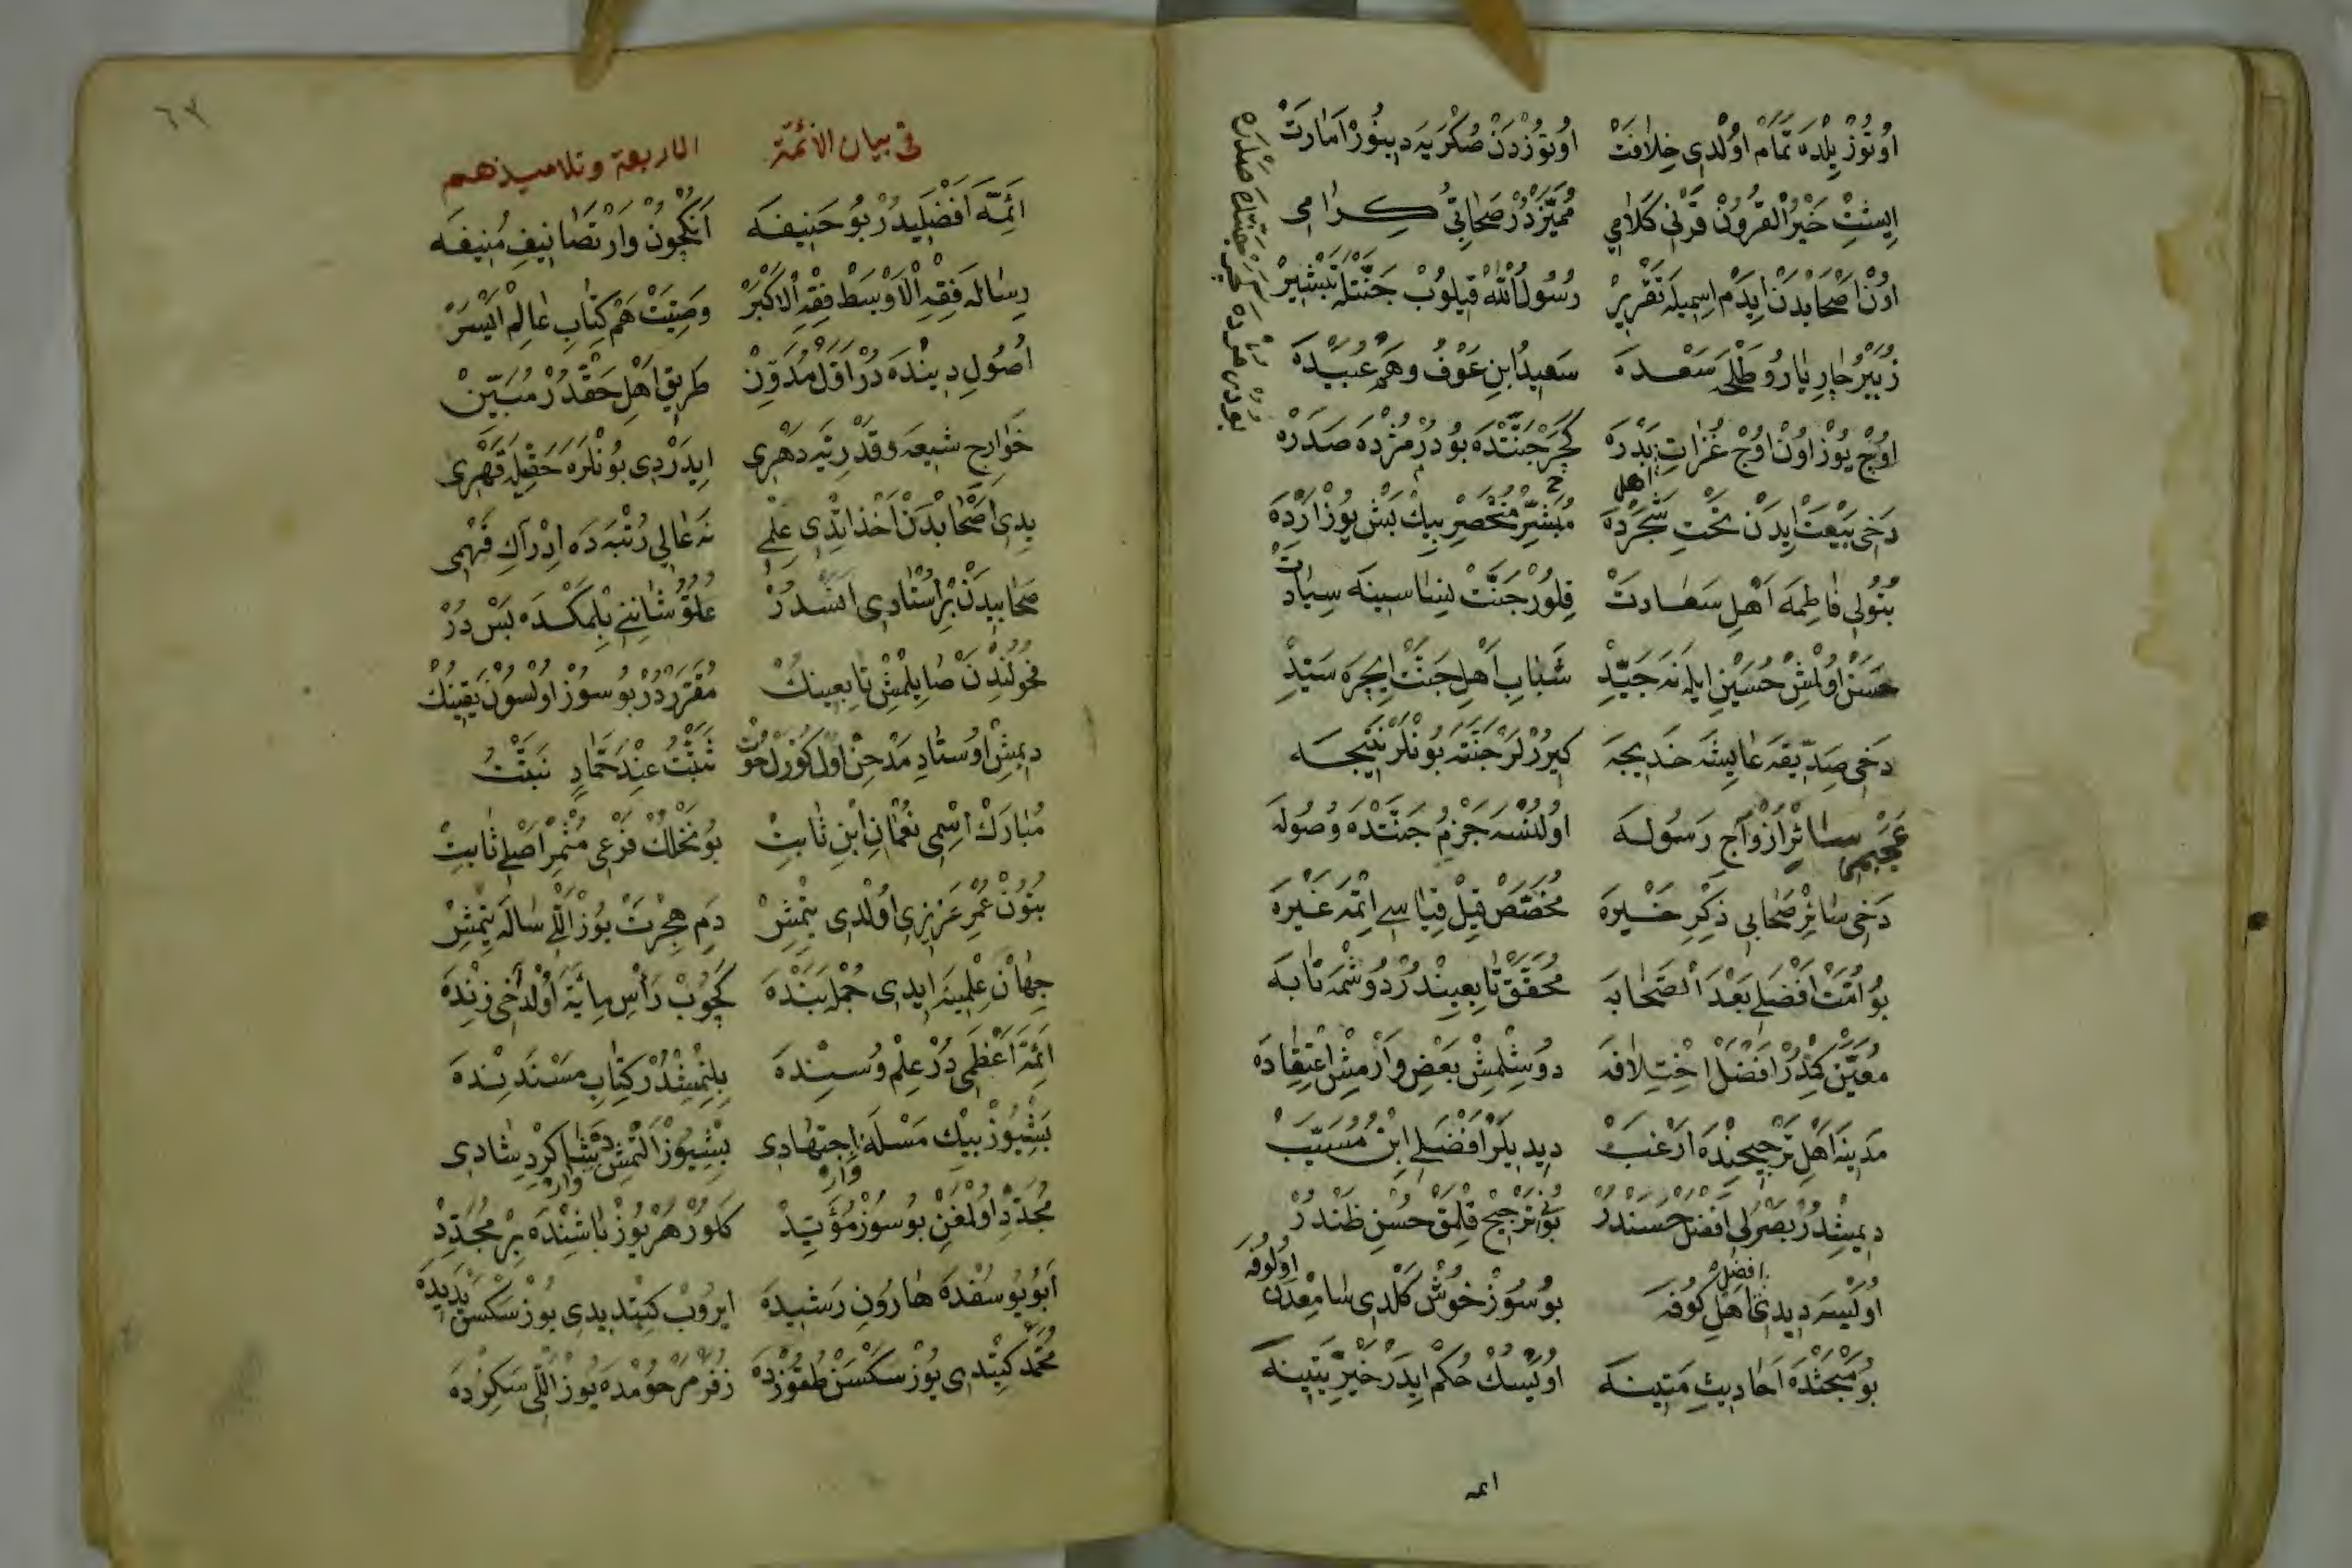 اوتوز یلده تمام اولدی خلافت اوتوزدن صکره یه دینور امارت
ایشت خیر القرون قرنی کلامی ممیزدر صحابی کرامی
اون اصحابدن ایدم اسمیله تقریر رسول الله قیلوب جنتله تبشیر
زبیر چار یار و طلحه سعده سعید ابن عوف و هم عبیده
اوچ یوز اون اوچ غزات بدره کچر جنتده بودر مژده صدره
دخی بیعت ایدن تحت شجرده مبشر منحصر بیك بش یوز ارده
اهل
بتولی فاطمه اهل سعادت قلور جنت نساسینه سیادت
حسن اولمش حسین ایله نه جید شباب اهل جنت ایچره سید
دخی صدیقه عایشه خدیجه کیرر لر جنته بونلر نتیجه
سائر ازواج رسوله اولنسه جزم جنتده وصوله
دخی سائر صحابی ذکر خیره مخصص قیل قیاسی ائمه غیره
بو امت افضلی بعد الصحابه محقق تابعیندر دوشمه تابه
معین کمدر افضل اختلافه دوشلمش بعض وارمش اعتقاده
مدینه اهل ترجیحنده ارغب دیدیلر افضلی ابن مسیب
دیمشدر بصرلی افضل حسندر بونی ترجیح قلمق حسن ظندر
اولیسه دیدی اهل کوفه بو سوز خوش کلدی سامعدن اولوفه
افضل
بو مبحثده احادیث متینه اویسك حکم ایدر خیریتینه
ائمه
٦٧
فی بیان الأئمة الاربعة وتلامیذهم
ائمه افضلیدر بو حنیفه انکچون وار تصانیف منیفه
رساله فقه الاوسط فقه الاکبر وصیت هم کتاب عالم ایسر
اصول دینده در اول مدون طریق اهل حقدر مبین
خوارج شیعه و قدریه دهری ایدردی بونلره حقیله قهری
یدی اصحابدن اخذ اتدی علمی نه عالی رتبه ده ادراك فهمی
صحابیدن بر استادی انسدر علو شاننی بلمکده بس در
فحولندن صایلمش تابعینك مقرر در بو سوز اولسون یقینك
دیمش اوستاد مدحن اول ثبت عند حماد نبت
مبارك اسمی نعمان ابن ثابت بو نخلك فرعی مثمر اصلی ثابت
بتون عمر عزیزی اولدی یتمش دم هجرت یوز اللی ساله یتمش
جهان علمینه ایدی جمله بنده کچوب رأس مائة اولدخی زنده
ائمه اعظمی در علم و سنده بلنمشدر کتاب مسندنده
بشیوز بیك مسئله اجتهادی بشیوز التمش بش شاکرد شادی
وار وار
مجدد اولمغن بو سوز مؤید کلور هر یوز باشنده بر مجدد
ابو یوسفده هارون رشیده ایروب کتدی یدی یوز سکسن یدیده
محمد کتدی یوز سکسن طقوزده زفر مرحومده یوز اللی سکزده